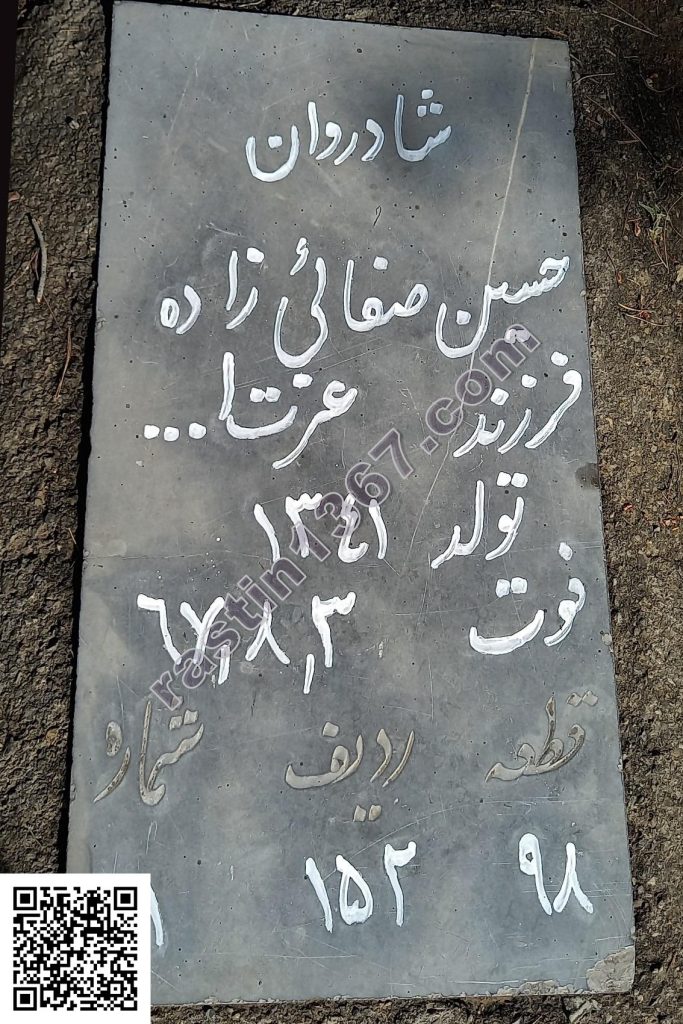 شادروان
حسین صفائی زاده
فرزند عزت ا...
تولد ۱۳۴۱
فوت ۶۷٫۸٫۳
قطعه ردیف شماره
۹۸ ۱۵۲
rastin1367.com